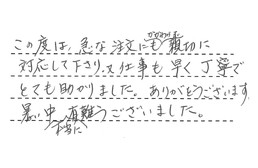 この度は、急な注文にも親切に
対応して下さり、又仕事も早く丁寧で
とても助かりました。ありがとうございます。
暑い中 本当に有難うございました。